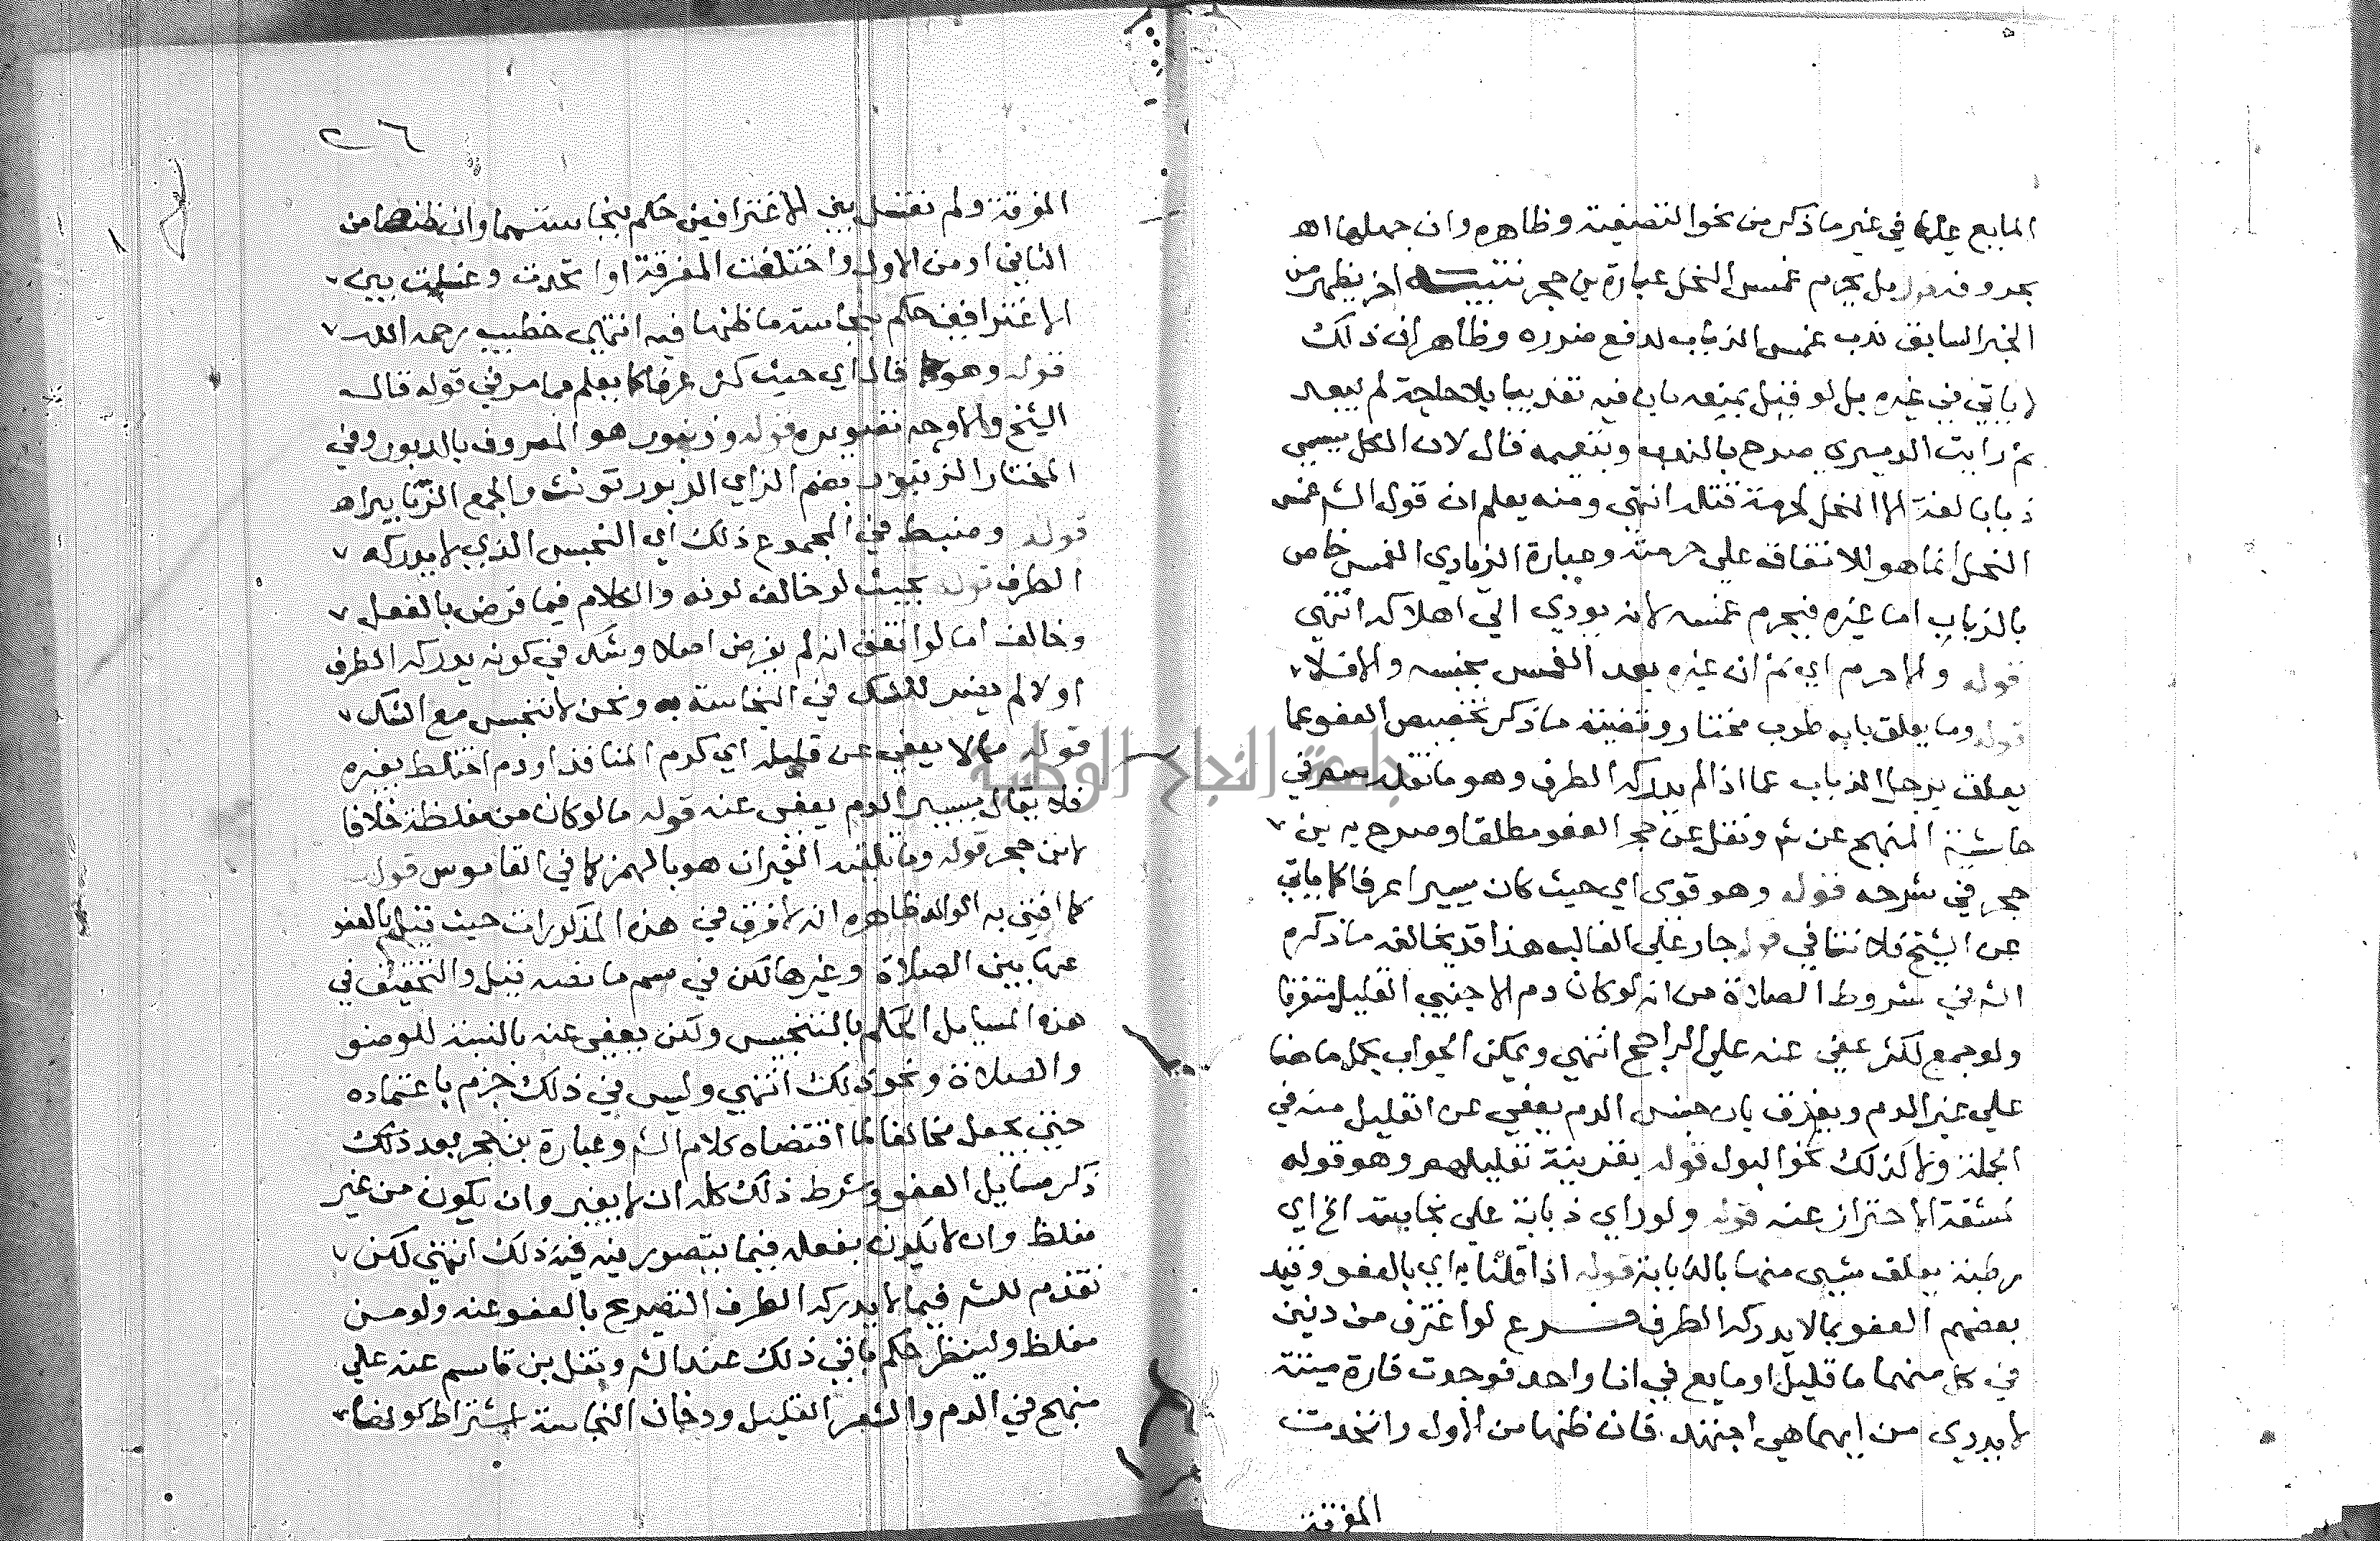 المايع عليها في غير ما ذكر من نحو التصفية وظاهره وان جهلها اه
بحروفه بل يحرم غمس النحل عبارة بن حجر تنبيه اخر يظهر من
الخبر السابق ندب غمس الذباب لدفع ضرره وظاهر ان ذلك
لا ياتي في غيره بل لو قيل بمنعه بان فيه تعذيبا بلا حاجة لم يبعد
ثم رايت الدميري صرح بالندب وبتعميمه قال لان الكل يسمى
ذبابا لغة الا النحل لحرمة قتله انتهى ومنه يعلم ان قول الشر غمس
النحل انما هو للاتفاق على حرمته وعبارة الزيادي الغمس خاص
بالذباب اما غيره فيحرم غمسه لانه يودي الى اهلاكه انتهى
قوله والا حرم اي ثم ان غيره بعد الغمس نجسه والا فلا
قوله وما يعلق بابه طرب مختار وقضية ما ذكر تخصيص العفو عما
يعلق برجل الذباب عما اذا لم يدركه الطرف وهو ما نقله سم في
حاشية المنهج عن شر ونقل عن حجر العفو مطلقا وصرح به بن
حجر في شرحه قوله وهو قوى اي حيث كان يسيرا عرفا كما ياتي
عن الشيخ فلا تنافي قوله جار على الغالب هذا قد يخالفه ما ذكره
الشر في شروط الصلاة من انه لو كان دم الاجنبي القليل متفرقا
ولو جمع لكثر عفي عنه على الراجح انتهى ويمكن الجواب بحمل ما هنا
على غير الدم ويفرق بان جنس الدم يعفى عن القليل منه في
الجملة ولا كذلك نحو البول قوله بقرينة تعليلهم وهو قوله
لمشقة الاحتراز عنه قوله ولو راي ذبابة على نجاسة الخ اي
رطبة يعلق شيى منها بالذبابة قوله اذا قلنا به اي بالعفو وقيد
بعضهم العفو بما لا يدركه الطرف فرع لو اغترف من دنين
في كل منهما ما قليل او مايع في انا واحد فوجدت فارة ميتة
لا يدري من ايهما هي اجتهد فان ظنها من الاول واتحدت
المغرفة
٢٦
المغرفة ولم تغسل بين الاغترافين حكم بنجاستهما وان ظنها من
الثاني او من الاول واختلفت المغرفة او اتحدت وغسلت بين
الاغترافين حكم بنجاسة ما ظنها فيه انتهى خطيب رحمه الله
قوله وهو كما قال اي حيث كثر عرفا كما يعلم مما مر في قوله قال
الشيخ والاوجه تصويره قوله وزنبور هو المعروف بالدبور وفي
المختار الزنبور بضم الزاي الدبور تونث والجمع الزنابير اه
قوله وضبط في المجموع ذلك اي النجس الذي لا يدركه
الطرف قوله بحيث لو خالف لونه والكلام فيما فرض بالفعل
وخالف اما لو اتفق انه لم يفرض اصلا وشك في كونه يدركه الطرف
اولا لم يضر للشك في النجاسة به ونحن لا ننجس مع الشك
قوله مما لا يعفى عن قليله اي كدم المنافذ او دم اختلط بغيره
فلا يقال يسير الدم يعفى عنه قوله ما لو كان من مغلظة خلافا
لابن حجر قوله وما تلقيه الفيران هو بالهمز كما في القاموس قوله
كما افتى به الوالد ظاهره انه لا فرق في هذه المذكورات حيث قيل بالعفو
عنها بين الصلاة وغيرها لكن في سم ما نصه قيل والتحقيق في
هذه المسايل الحكم بالتنجيس ولكن يعفى عنه بالنسبة للوضو
والصلاة ونحو ذلك انتهى وليس في ذلك جزم باعتماده
حتى يجعل مخالفا لما اقتضاه كلام الشر وعبارة بن حجر بعد ذلك
ذكر مسايل العفو وشرط ذلك كله ان لا يغير وان يكون من غير
مغلظ وان لا يكون بفعله فيما يتصور فيه فيه ذلك انتهى لكن
تقدم للشر فيما لا يدركه الطرف التصريح بالعفو عنه ولو من
مغلظ ولينظر حكم باقي ذلك عند الشر ونقل بن قاسم عنه على
منهج في الدم والشعر القليل ودخان النجاسة اشتراط كونها
جامعة النجاح الوطنية